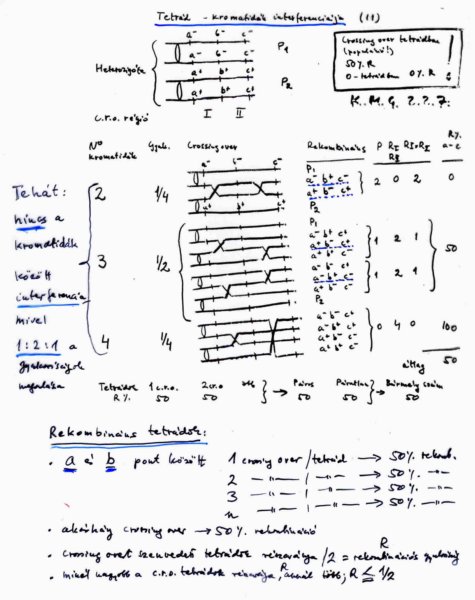 Tetrád - kromatidák interferenciája (11)
Crossing over tetrádban
(populáció!)
50% R
0-tetrádban 0% R !
a⁻ b⁻ c⁻
a⁻ b⁻ c⁻
P₁
Heterozigóta
a⁺ b⁺ c⁺
a⁺ b⁺ c⁺
P₂
K. M. G. 2. 2. 7.
c.r.o. régió I II
N° kromatidák Gyak. Crossing over Rekombináns P R_I R_II R_I+R_II R% a-c
a⁻ b⁻ c⁻
P₁
2 1/4
a⁻ b⁺ c⁻
a⁺ b⁻ c⁺
2 0 2 0
a⁺ b⁺ c⁺
P₂
Tehát:
nincs a
kromatidák
között
interferencia
mivel
1:2:1 a
gyakoriságok
megoszlása
P₁
3 1/2
a⁻ b⁺ c⁻
a⁺ b⁻ c⁻
1 2 1
50
a⁻ b⁺ c⁻
1 2 1
P₂
4 1/4
a⁻ b⁻ c⁺
a⁻ b⁺ c⁺
a⁺ b⁻ c⁻
a⁺ b⁺ c⁻
0 4 0 100
átlag 50
Tetrádok 1 c.r.o. 2 cro több → Páros Páratlan → Bármely szám
R% 50 50 50 50 50 50
Rekombináns tetrádok:
• a és b pont között 1 crossing over/tetrád → 50% rekomb.
2 —"— / —"— → 50% —"—
3 —"— / —"— → 50% —"—
n —"— / —"— → 50% —"—
• akárhány crossing over → 50% rekombináció
• Crossing overt szenvedett tetrádok részaránya/2 = R rekombinációs gyakoriság
• minél nagyobb a c.r.o. tetrádok részaránya, R annál több; R ≤ 1/2